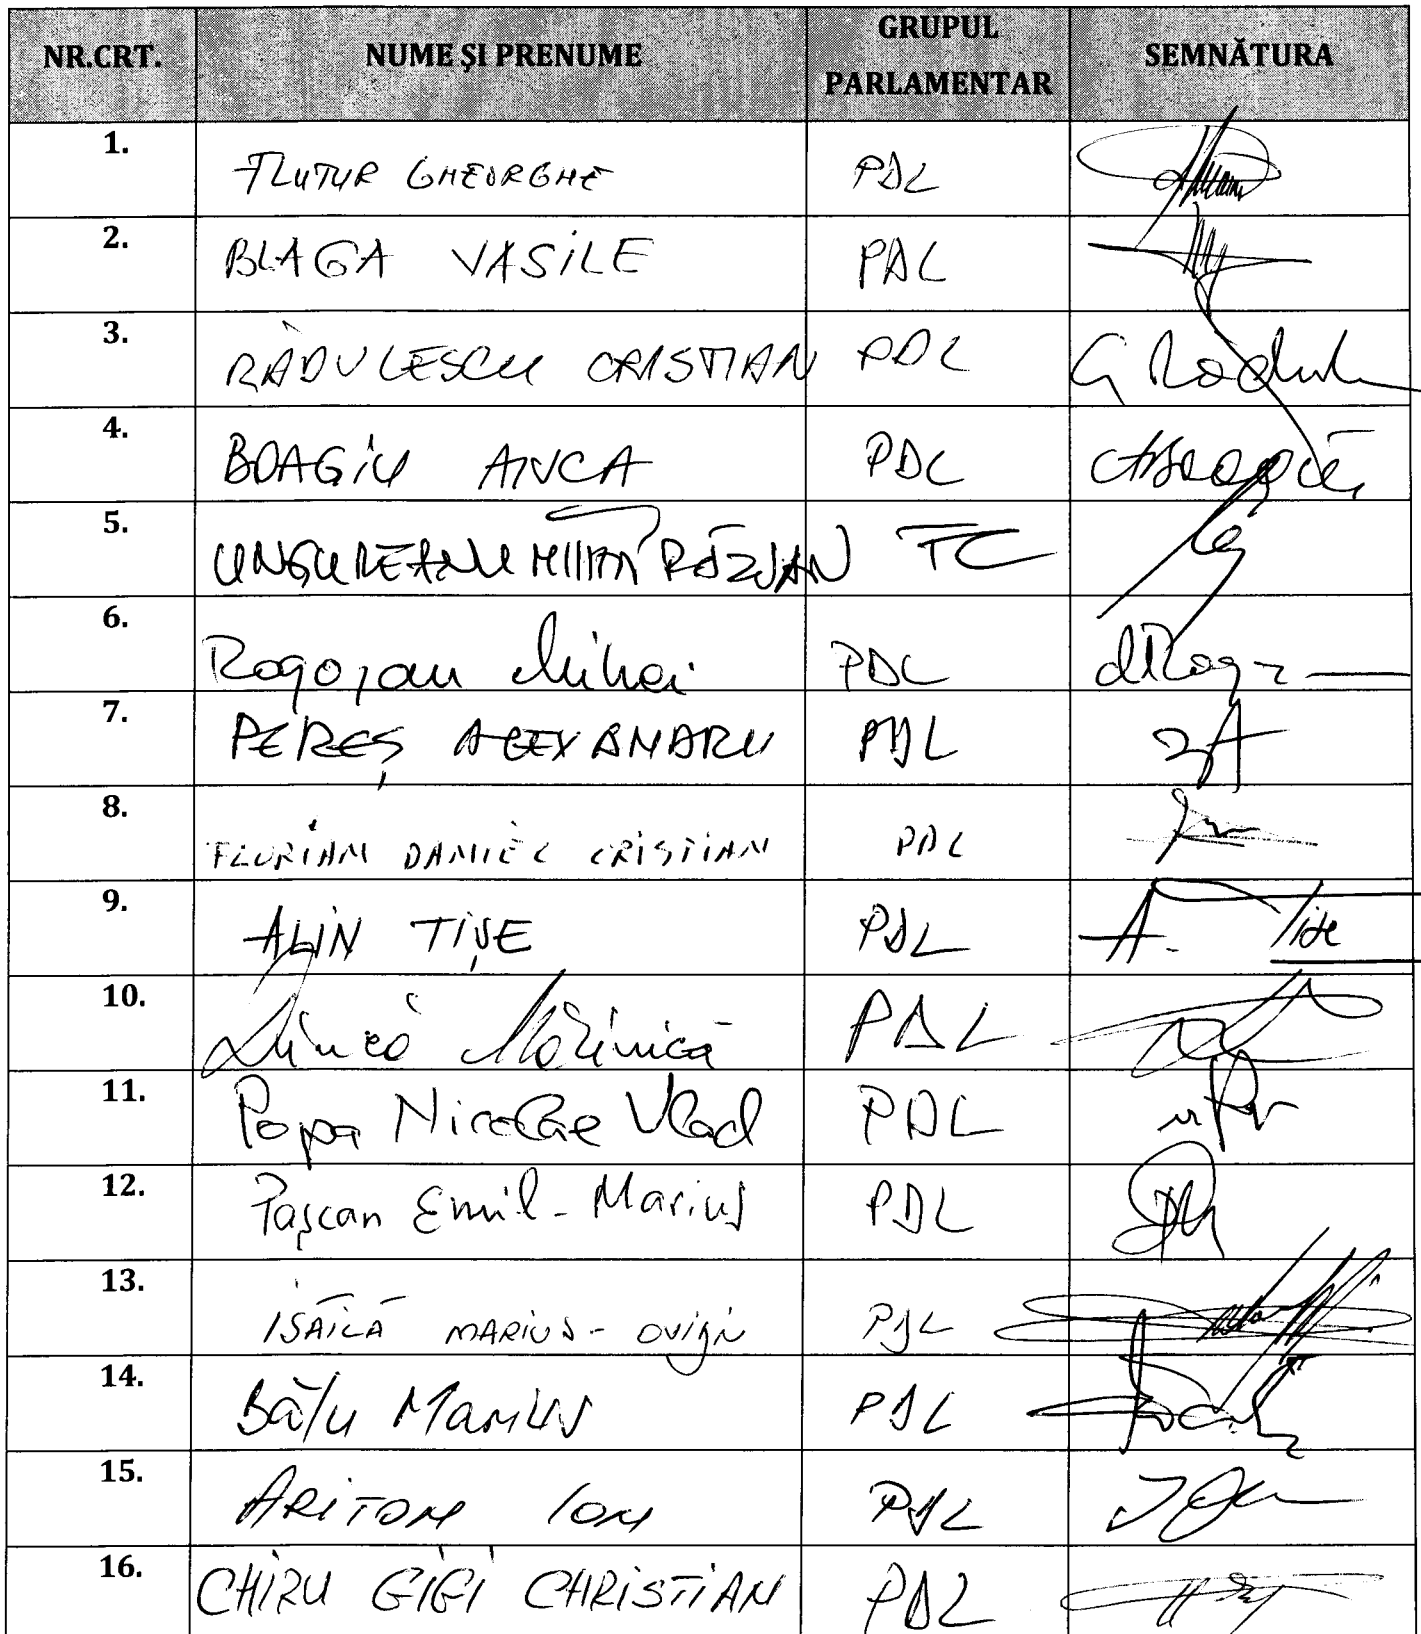 NR.CRT. NUME ȘI PRENUME GRUPUL PARLAMENTAR SEMNĂTURA
1. FLUTUR GHEORGHE PDL
2. BLAGA VASILE PDL
3. RĂDULESCU CRISTIAN PDL
4. BOAGIU ANCA PDL
5. UNGUREANU MIHAI RĂZVAN TC
6. Rogojan Mihai PDL
7. PEREȘ ALEXANDRU PDL
8. FLORIAN DANIEL CRISTIAN PDL
9. ALIN TIȘE PDL A. Tișe
10. Dincă Mărinică PDL
11. Popa Nicolae Vlad PDL
12. Pașcan Emil-Marius PDL
13. ISĂILĂ MARIUS-OVIDIU PDL
14. Bălu Marius PDL
15. ARITON ION PDL
16. CHIRU GIGI CHRISTIAN PDL